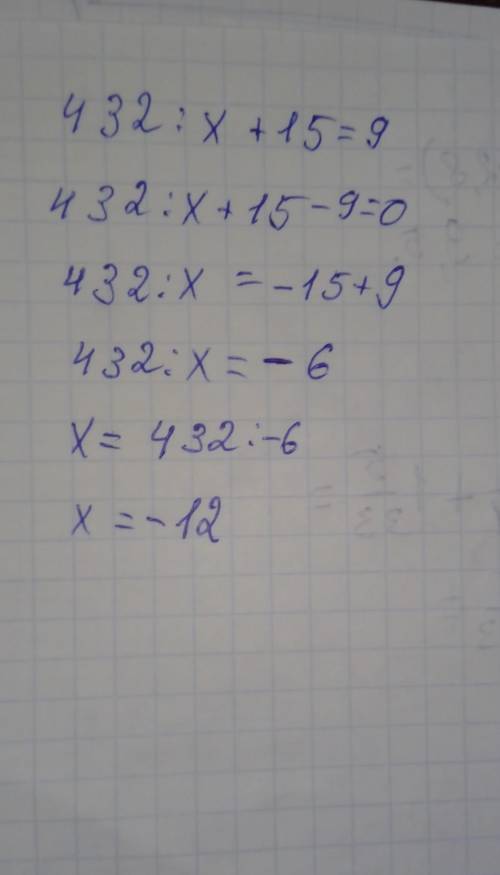 432:x+15=9
432:x+15-9=0
432:x=-15+9
432:x=-6
x=432:-6
x=-12